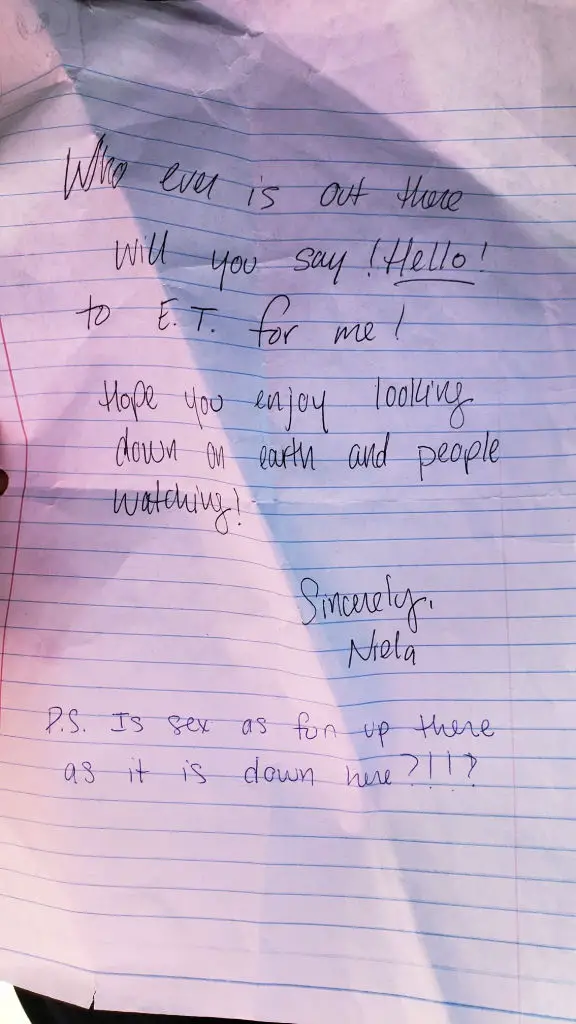 Who ever is out there
will you say ! Hello!
to E.T. for me!
Hope you enjoy looking
down on earth and people
watching!
Sincerely,
Niela
P.S. Is sex as fun up there
as it is down here?!!?